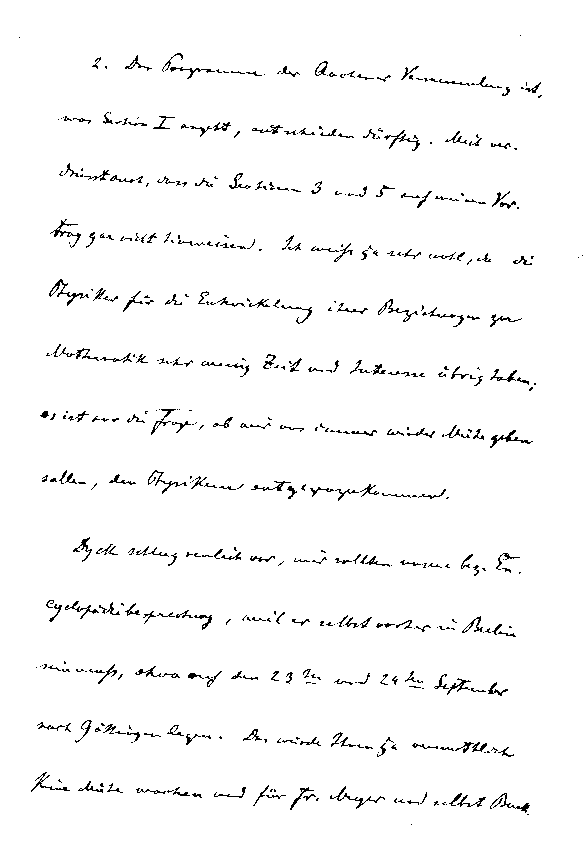 2. Das Programm der Aachener Versammlung ist,
was Section I angeht, entschieden dürftig. Mich ver-
driesst auch, dass die Sectionen 3 und 5 auf meinen Vor-
trag gar nicht hinweisen. Ich weiss ja sehr wohl, da die
Physiker für die Entwickelung ihrer Beziehungen zur
Mathematik sehr wenig Zeit und Interesse übrig haben;
es ist nur die Frage, ob wir uns immer wieder Mühe geben
sollen, den Physikern entgegenzukommen.
Dyck schlug neulich vor, wir sollten unsere bez. En-
cyclopädiebesprechung, weil er selbst vorher in Berlin
sein muss, etwa auf den 23ten und 24ten September
nach Göttingen legen. Das würde Ihnen ja vermuthlich
keine Mühe machen und für Fr. Meyer und selbst Burk-